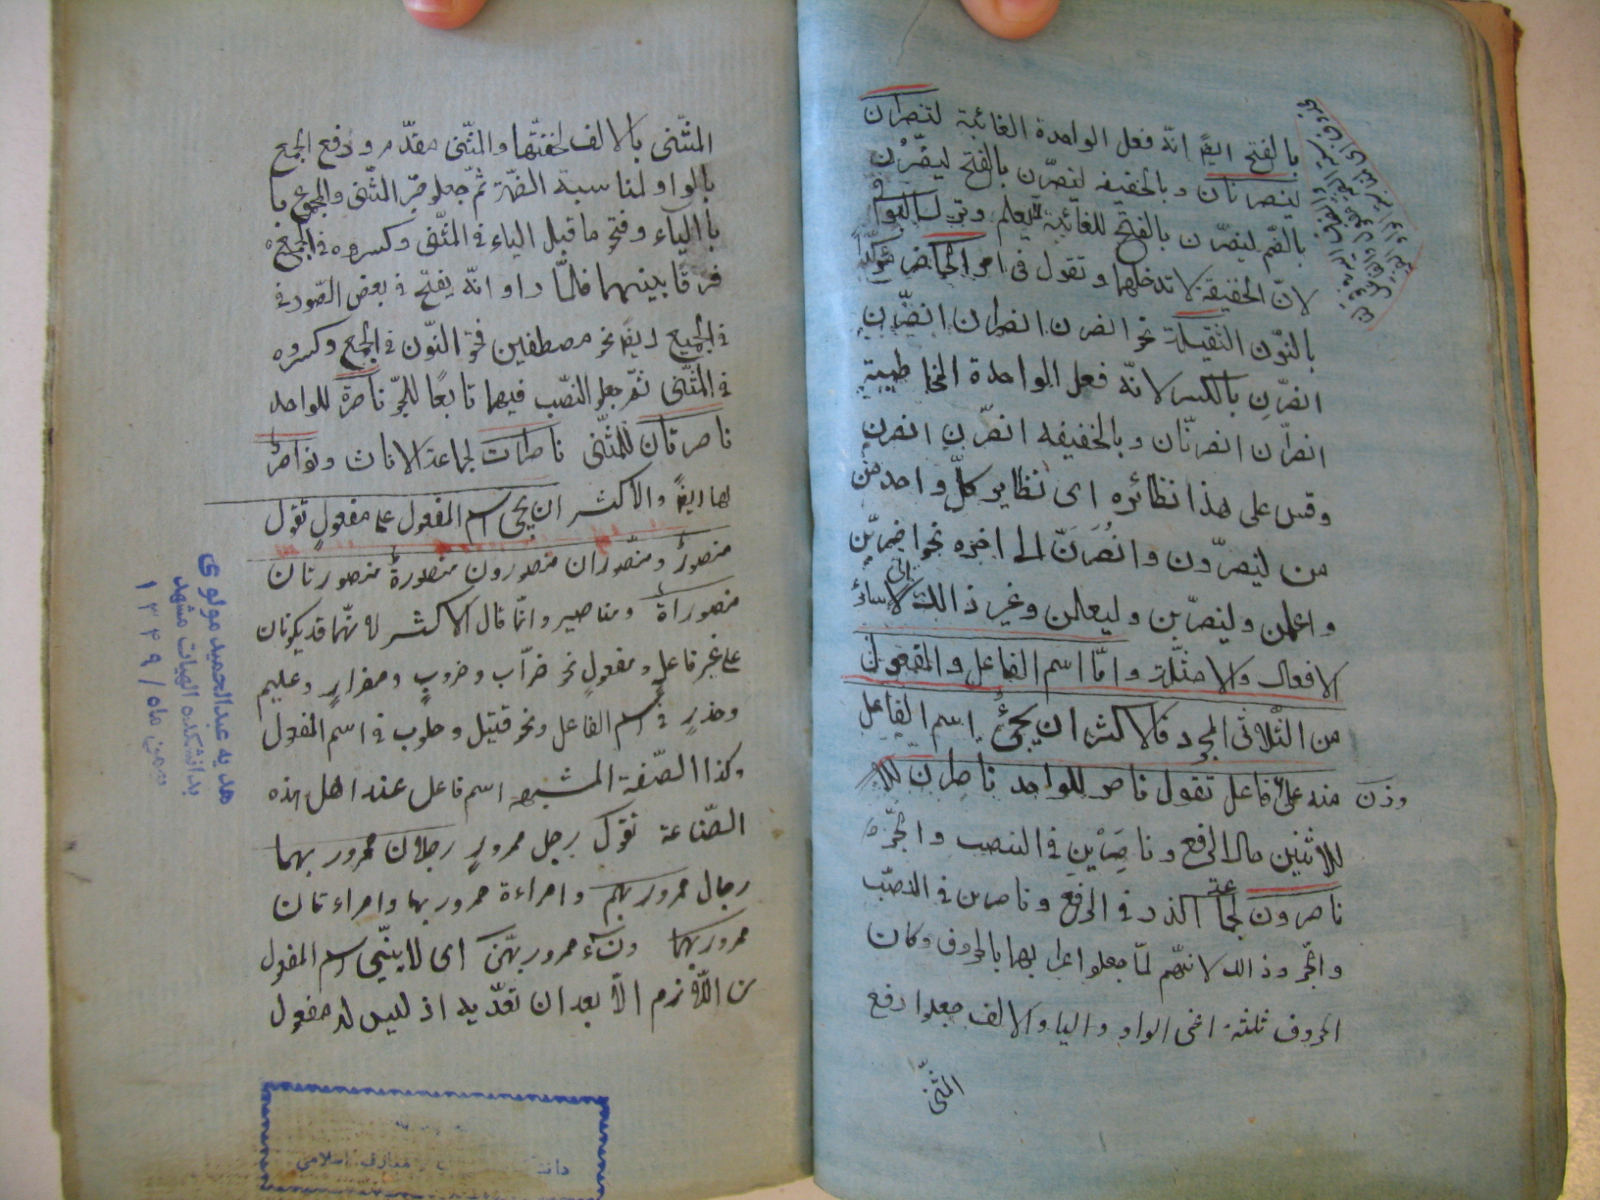 بالفتح ايضً انّه فعل الواحدة الغائبة لتنصرانّ
لينصرنان وبالخفيفه لينصرن بالفتح لينصرُن
بالضم لينصرن بالفتح للغائبة
لانّ الخفيفة لا تدخلهما وتقول فى امر الحاضر مؤكّداً
بالنّون الثقيلة نحو انصرن انصران انصرن
انصرن بالكسر لانّه فعل الواحدة المخاطبة
انصران انصرنان وبالخفيفه انصرن انصرن انصرن
وقس على هذا نظائره اى نظاير كلّ واحد من
من لينصرون وانصرن الى اخره نحو اضربن
واعلمن ولينصربن وليعلمن وغير ذالك الى
الافعال والامثلة وامّا اسم الفاعل والمفعول
من الثّلاثى المجرد فالاكثر ان يجئ اسم الفاعل
وزن منه على فاعل تقول ناصر للواحد ناصران للا
للاثنين حال الرفع وناصِرَيْنِ فى النصب والجرّ
ناصرون لجماعة الذكر فى الرفع وناصرين فى النصب
والجر وذالك لانهم لمّا جعلوا اعرابهما بالحروف وكان
الحروف ثلثة اعنى الواو واليا والالف جعلوا رفع
المثنى
المثّنى بالالف لخفتّها والمثّنى مقدّم ورفع الجمع
بالواو لمناسبة الضمّة ثمّ جعلو جرّ المثّنى والمجموع با
بالياء وفتح ما قبل الياء فى المثّنى وكسروه فى الجمع
فرقا بينهما فلمّا راو انّه يفتح فى بعض الصور فى
فى الجميع ايضً نحو مصطفين فتح النّون فى الجمع وكسروه
فى المثّنى ثمّ جعلو النّصب فيهما تابعًا للجّر ناصرة للواحد
ناصرتان للمثّنى ناصرات لجماعة الاناث ونواصرُ
لها ايضً والاكثر ان يجى اسم المفعول على مفعولٍ تقول
منصورٌ ومنصوران منصورون منصورةٌ منصورتان
منصوراة ومناصير وانّما قال الاكثر لانّهما قد يكونان
على غير فاعلٍ ومفعولٍ نحو ضرّاب وضروبٍ ومضرابٍ وعليم
وحذرٍ فى اسم الفاعل ونحو قتيل وحلوب فى اسم المفعول
وكذا الصّفة المشبهه اسم فاعل عند اهل هذه
الصّناعة تقول رجل ممرورٍ رجلان ممرور بهما
رجال ممرور بهم وامراءة ممرور بها وامراءتان
ممرور بهما ونساء ممرور بهنّ اى لا يبنى اسم المفعول
من اللّازم الّا بعد ان تعدّيه اذ ليس له مفعول
هديه عبدالحميد مولوى
بدانشكده الهيات مشهد
بهمن ماه ١٣٤٩
معارف اسلامى